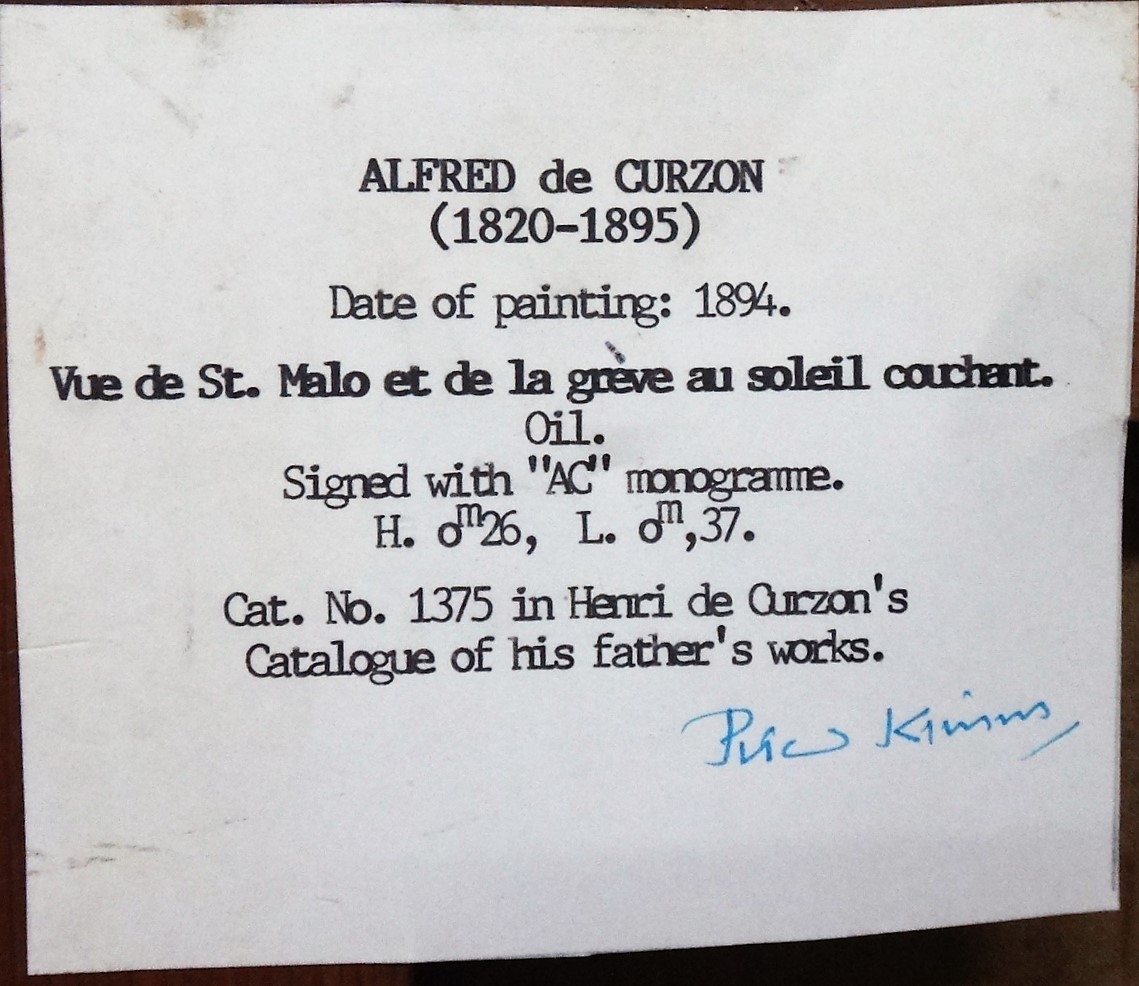 ALFRED de CURZON
(1820-1895)
Date of painting: 1894.
Vue de St. Malo et de la grève au soleil couchant.
Oil.
Signed with "AC" monogramme.
H. oᵐ26, L. oᵐ,37.
Cat. No. 1375 in Henri de Curzon's
Catalogue of his father's works.